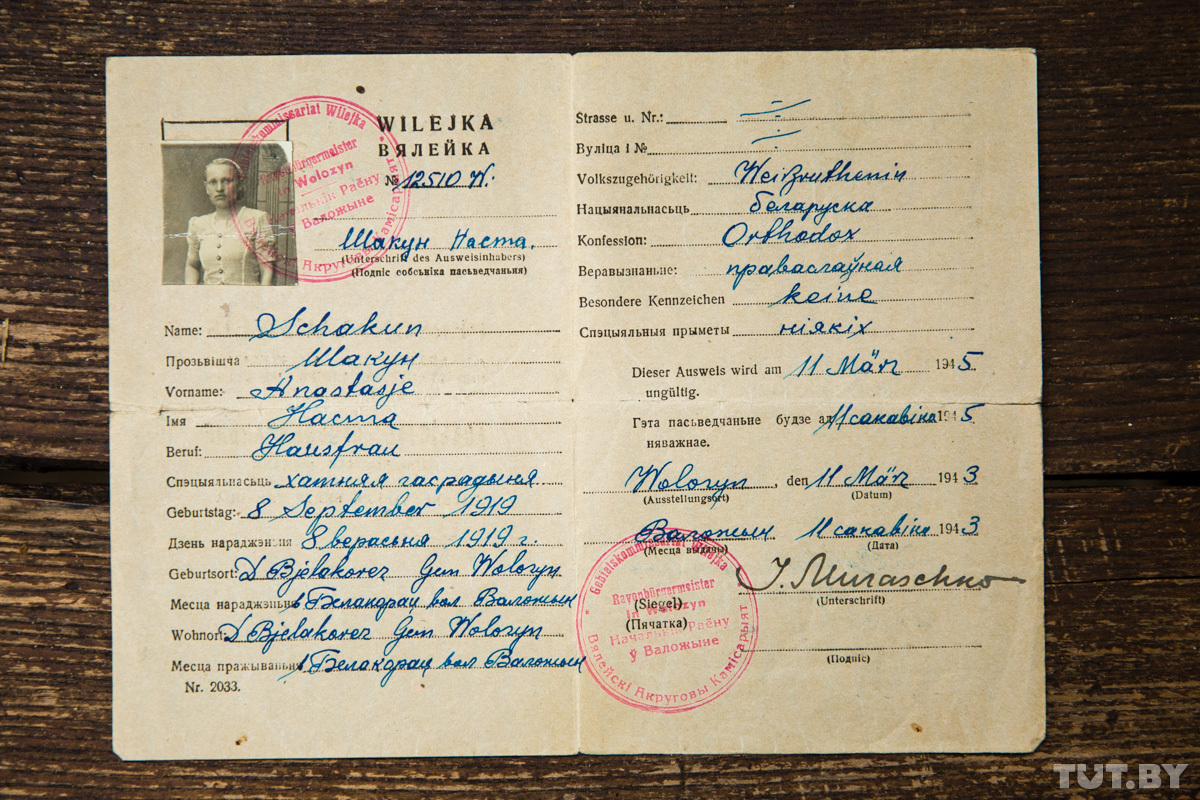 WILEJKA
ВЯЛЕЙКА
№ 12510 W.
Шакун Наста.
(Unterschrift des Ausweisinhabers)
(Подпіс собсьніка пасьведчаньня)
Name: Schakun
Прозьвішча Шакун
Vorname: Anastasje
Імя Наста
Beruf: Hausfrau
Спэцыяльнасьць хатняя гаспадыня.
Geburtstag: 8 September 1919
Дзень нараджэньня 8 верасьня 1919 г.
Geburtsort: D Bjelakorez Gem Wolozyn
Месца нараджэньня в Белакорац вол Валожын
Wohnort: D Bjelakorez Gem Wolozyn
Месца пражываньня в Белакорац вол Валожын
Nr. 2033.
Strasse u. Nr.:
Вуліца і №
Volkszugehörigkeit: Weißruthenin
Нацыянальнасьць беларуска
Konfession: Orthodox
Веравызнаньне: праваслаўная
Besondere Kennzeichen keine
Спэцыяльныя прыметы ніякіх
Dieser Ausweis wird am 11 März 1945
ungültig.
Гэта пасьведчаньне будзе ад 11 сакавіка 1945
няважнае.
Wolozyn, den 11 März 1943
(Ausstellungsort) (Datum)
Валожын 11 сакавіка 1943
(Месца выдачы) (Дата)
J. Muraschko
(Unterschrift)
(Siegel)
(Пячатка)
(Подпіс)
Gebietskommissariat Wilejka
Rayonbürgermeister
in Wolozyn
Начальнік Раёну
ў Валожыне
Вялейскі Акруговы Камісарыят
TUT.BY